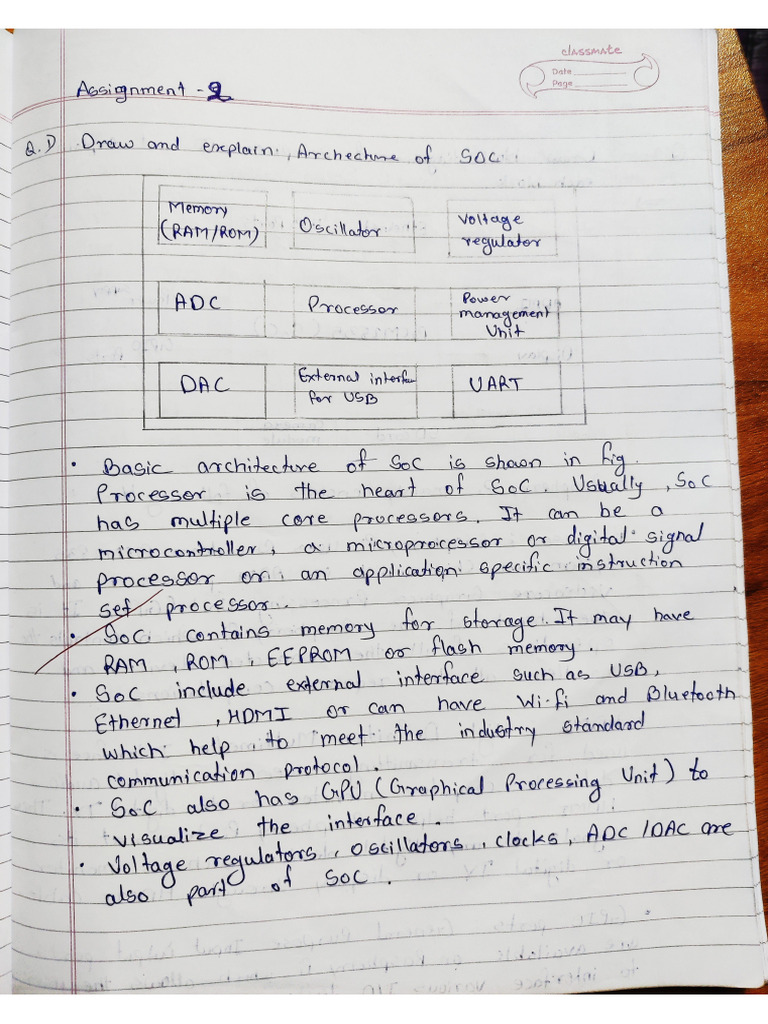 classmate
Date
Page
Assignment - 2
Q.1) Draw and explain, Archecture of SOC.
Memory
(RAM/ROM)
Oscillator
Voltage
regulator
ADC
Processor
Power
management
Unit
DAC
External interfac
for USB
UART
• Basic architecture of SoC is shown in fig.
Processor is the heart of SoC. Usually, SoC
has multiple core processors. It can be a
microcontroller, a microprocessor or digital signal
processor or an application specific instruction
set processor.
• SoC contains memory for storage. It may have
RAM, ROM, EEPROM or flash memory.
• SoC include external interface such as USB,
Ethernet, HDMI or can have Wi-fi and Bluetooth
which help to meet the industry standard
communication protocol.
• SoC also has GPU (Graphical Processing Unit) to
visualize the interface.
• Voltage regulators, oscillators, clocks, ADC/DAC are
also part of SoC.